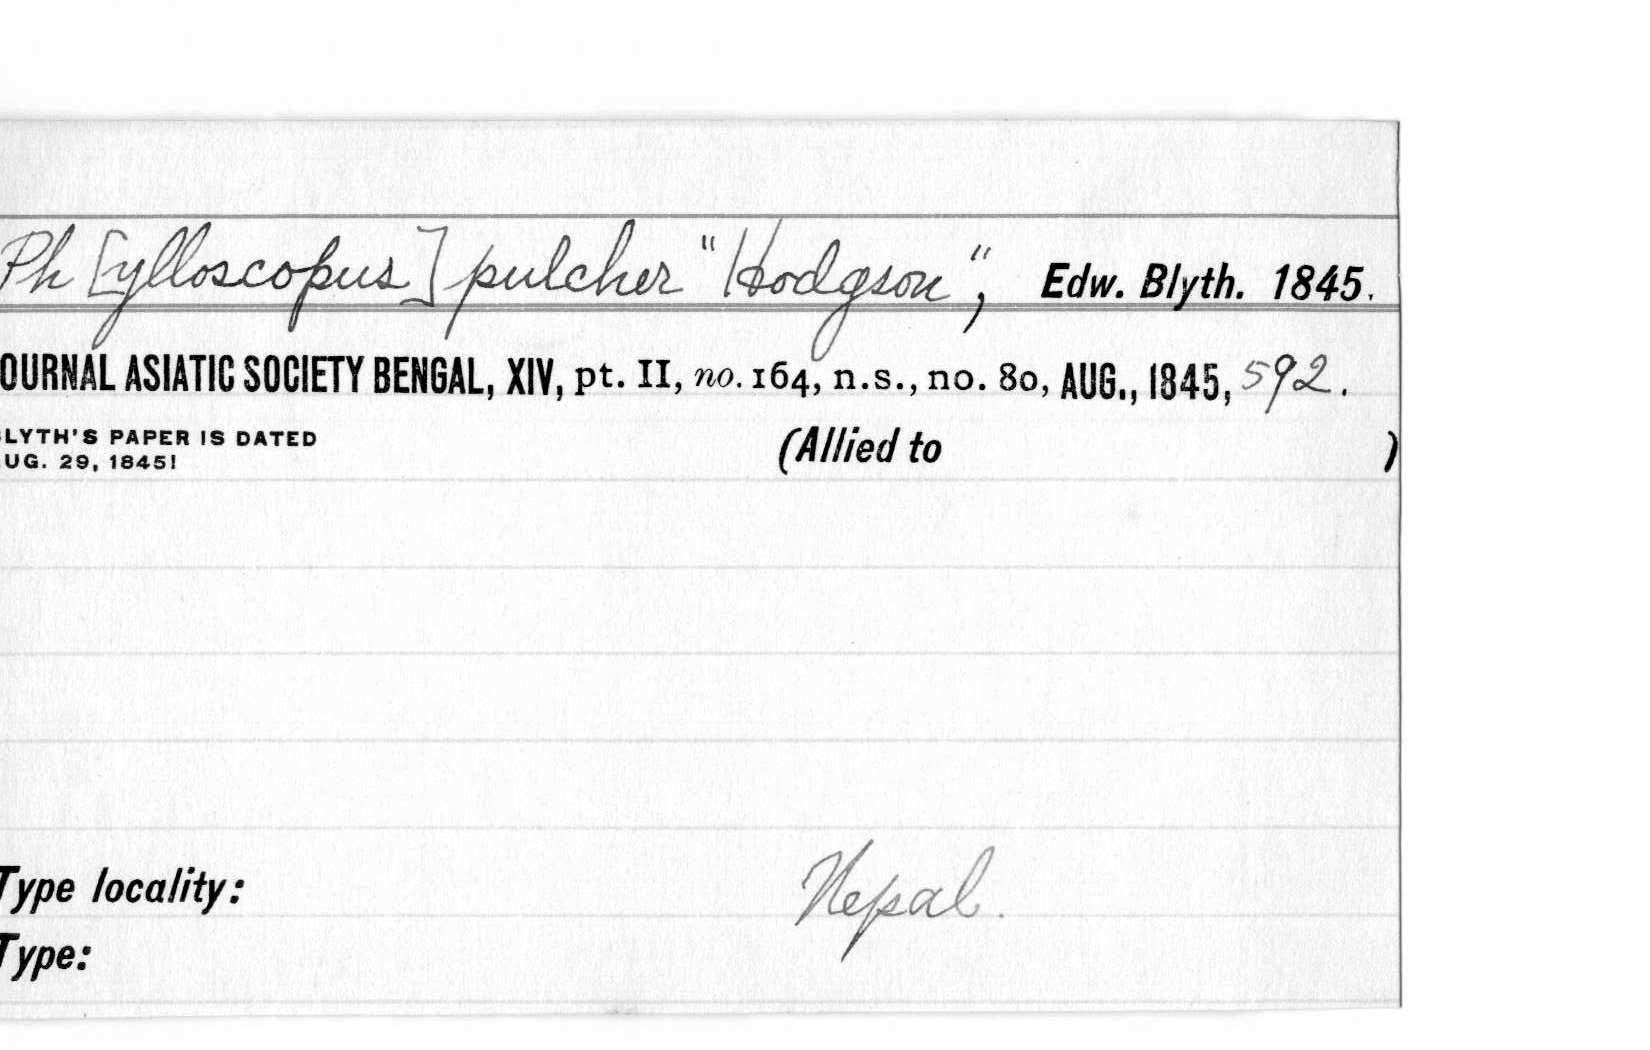 Ph[ylloscopus] pulcher "Hodgson", Edw. Blyth. 1845.
OURNAL ASIATIC SOCIETY BENGAL, XIV, pt. II, no. 164, n.s., no. 80, AUG., 1845, 592.
LYTH'S PAPER IS DATED
UG. 29, 1845!
(Allied to )
Type locality: Nepal.
Type: